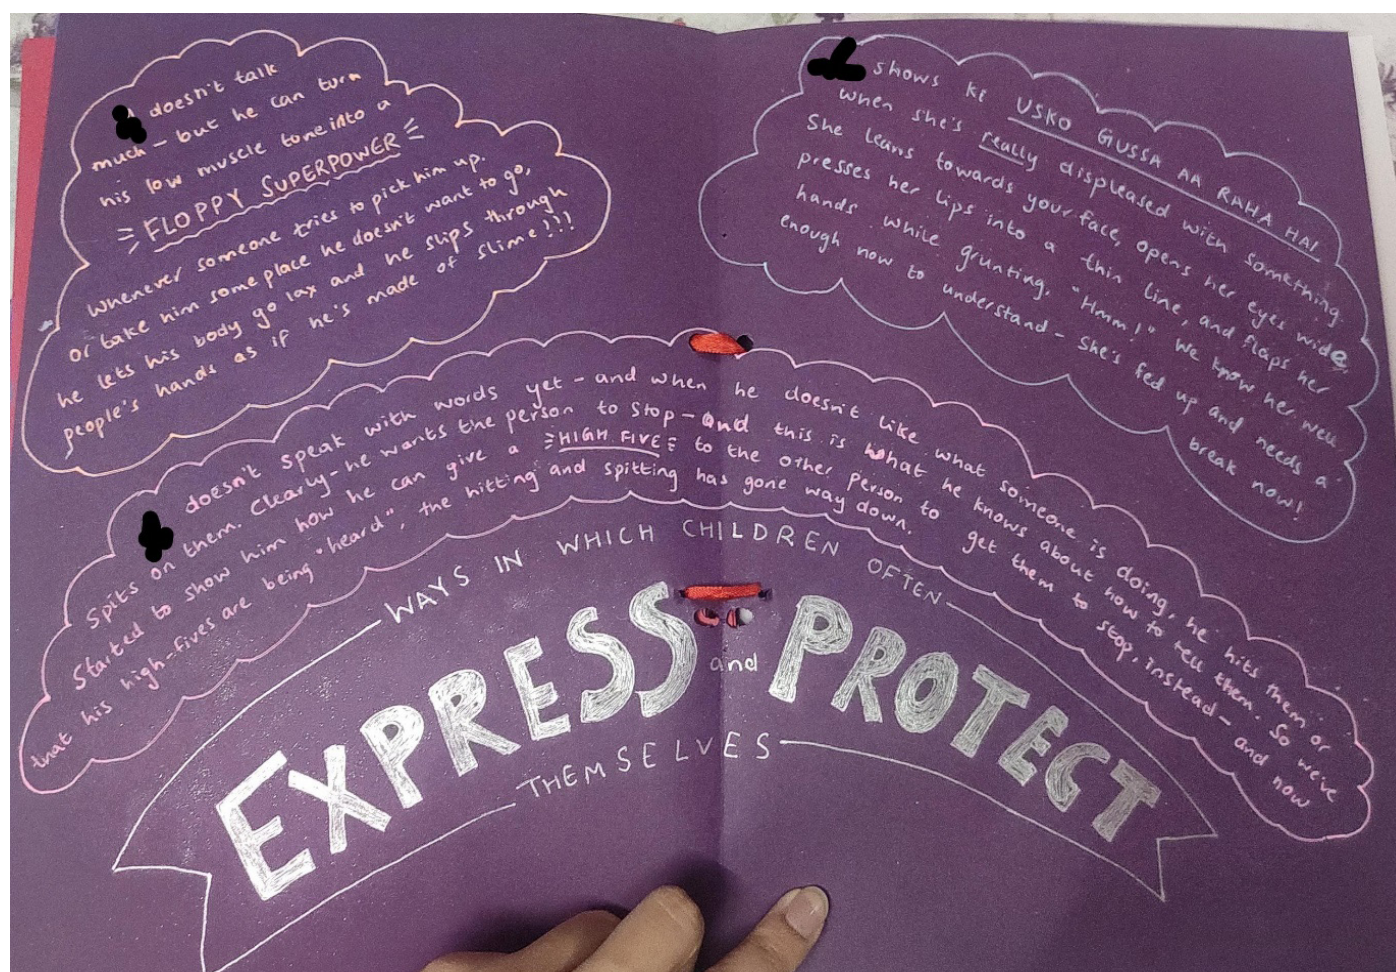 doesn't talk
much – but he can turn
his low muscle tone into a
FLOPPY SUPERPOWER
Whenever someone tries to pick him up.
or take him some place he doesn't want to go,
he lets his body go lax and he slips through
people's hands as if he's made of slime!!!
shows ke USKO GUSSA AA RAHA HAI
when she's really displeased with something.
She leans towards your face, opens her eyes wide,
presses her lips into a thin line, and flaps her
hands while grunting, "Hmm!" We know her well
enough now to understand – she's fed up and needs a
break now!
doesn't speak with words yet – and when he doesn't like what someone is doing, he hits them or
spits on them. Clearly – he wants the person to stop – and this is what he knows about how to tell them. So we've
started to show him how he can give a HIGH FIVE to the other person to get them to stop, instead – and now
that his high-fives are being "heard", the hitting and spitting has gone way down.
WAYS IN WHICH CHILDREN OFTEN
EXPRESS and PROTECT
THEMSELVES